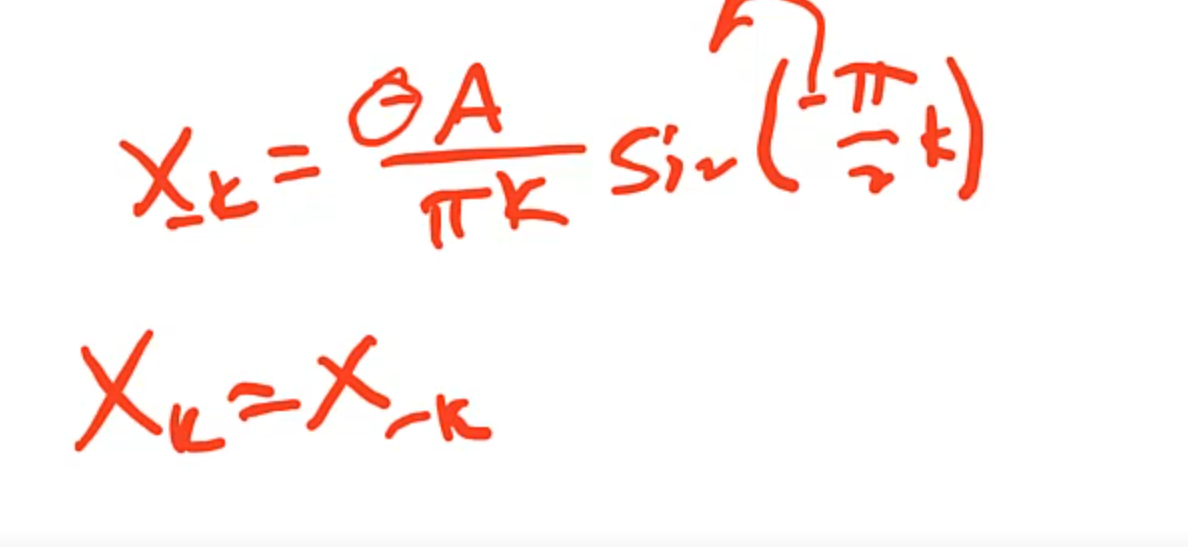 X_{-k} = \frac{⊖A}{πK} Sin(-\frac{π}{2}k)
X_k = X_{-k}